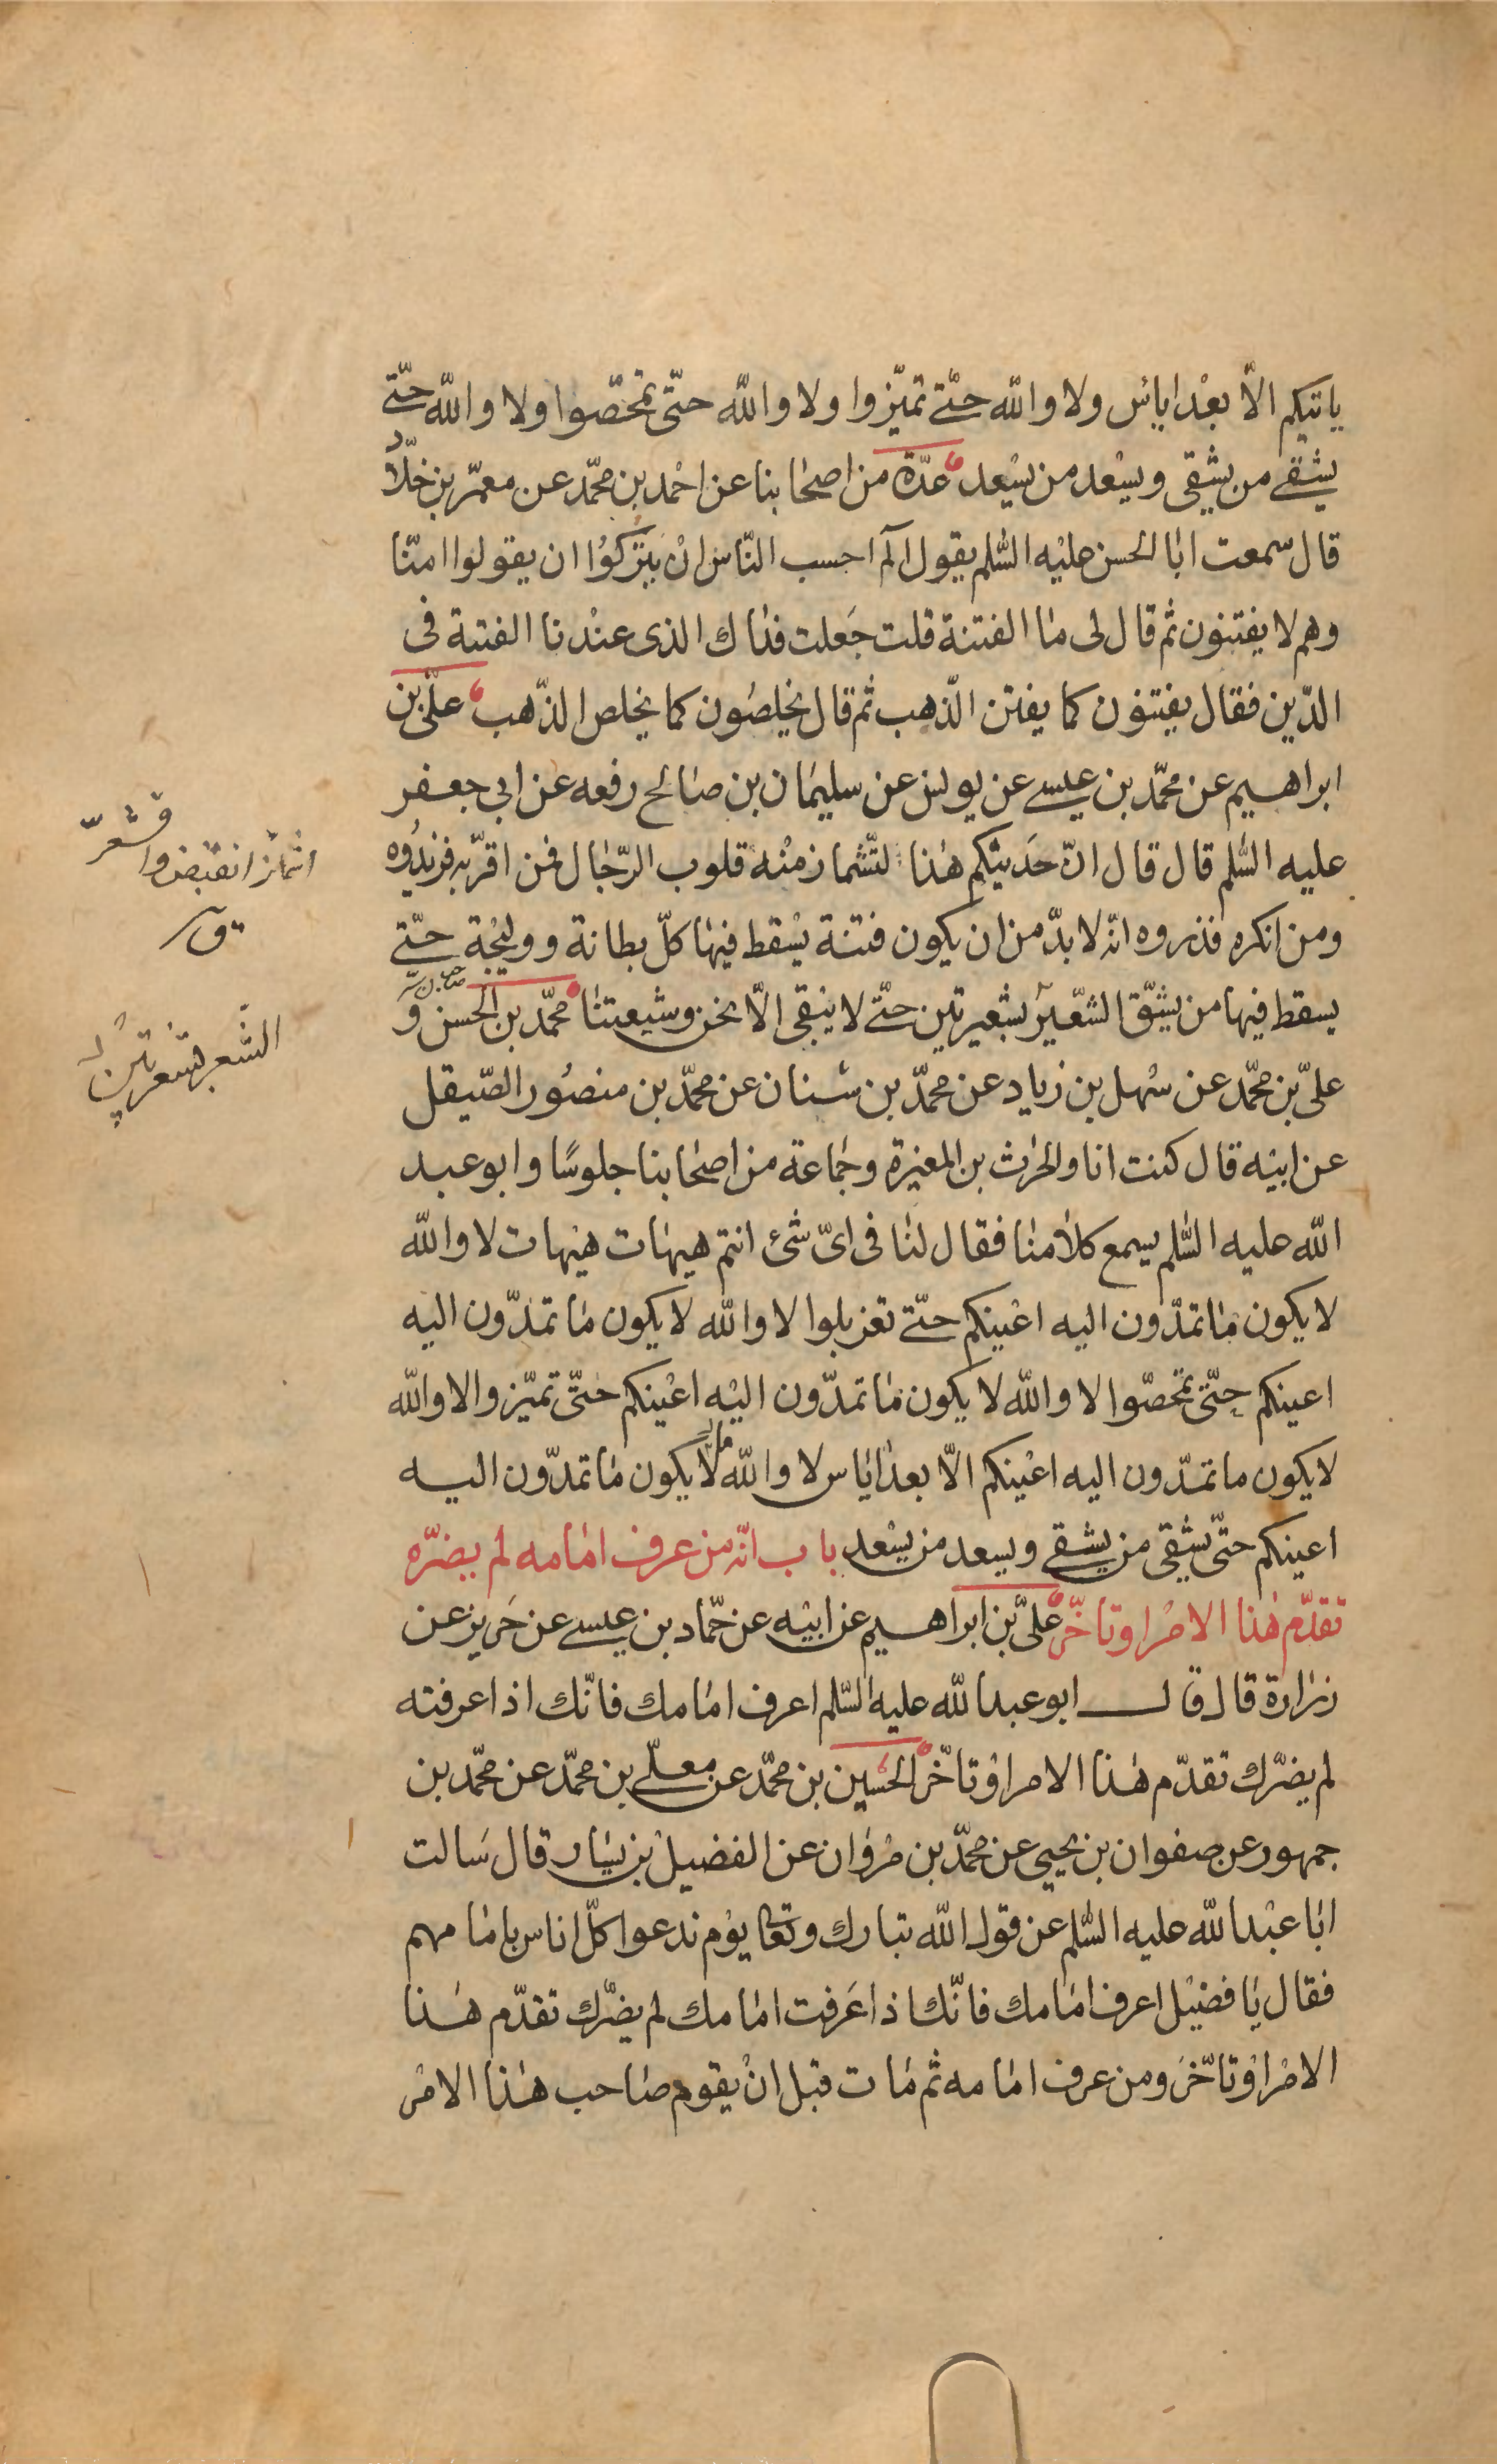 ياتيكم الّا بعْد اياس ولا والله حتّى تميّزوا ولا والله حتّى تمحّصوا ولا والله حتّى
يشقى من يشقى ويسْعد من يسْعد عدّة من اصحابنا عن احْمد بن محمّد عن معمّر بن خلّاد
قال سمعت ابا الحسن عليْه السّلم يقول الٓم احسب النّاس انْ يتركوُا ان يقولوا امنّا
وهم لا يفتنون ثم قال لى ما الفتنة قلت جَعلت فداك الذى عنْدنا الفتنة فى
الدّين فقال يفتنون كما يفتن الذّهب ثم قال يخلصُون كما يخلص الذّهب علىّ بن
ابراهيم عن محمّد بن عيسى عن يونس عن سليمان بن صالح رفعه عن ابى جعفر
عليه السّلم قال قال انّ حَديثكم هذا لتشماز منْه قلوب الرّجال فمن اقرّ به فزيدُوه
ومن انكره فذروه انّه لا بدّ من ان يكون فتنة يسْقط فيها كلّ بطانة ووليْجة حتّى
يسقط فيها من يشقّ الشّعيرَ بشعيرتين حتّى لا يبْقى الّا نحن وشيعتنا محمّد بن الحسن و
علىّ بن محمّد عن سْهل بن زياد عن محمّد بن سنان عن محمّد بن منصُور الصّيقل
عن ابيْه قال كنت انا والحرث بن المغيرة وجماعة من اصحابنا جلوسًا وابو عبد
الله عليه السّلم يسمع كلامنا فقال لنا فى اىّ شئ انتم هيهات هيْهات لا والله
لا يكون ما تمدّون اليه اعْينكم حتّى تغربلوا لا والله لا يكون ما تمدّون اليه
اعينكم حتّى تمحصّوا لا والله لا يكون ما تمدّون اليْه اعْينكم حتّى تميّزوا لا والله
لا يكون ما تمدّون اليه اعْينكم الّا بعد اياس لا والله لا يكون ما تمدّون اليه
اعينكم حتّى يشْقى من يشقى ويسعد من يسْعد باب انّه من عرف امامه لم يضرّه
تقدّم هذا الامْر او تاخّر علىّ بن ابراهيم عن ابيْه عن حمّاد بن عيسى عن حَريز عن
زرارة قال قال ابو عبد الله عليه السّلم اعرف امامك فانّك اذا عرفته
لم يضرّك تقدّم هذا الامر اوْ تاخّر الحسَين بن محمّد عن معلّى بن محمّد عن محمّد بن
جمهور عن صفوان بن يحيى عن محمّد بن مرْوان عن الفضيل بن يسَار قال سَالت
ابا عبْد الله عليه السّلم عن قول الله تبارك وتعا يوْم ندعوا كلّ اناس بامامهم
فقال يا فضيْل اعرف امامك فانّك اذا عَرفت امامك لم يضرّك تقدّم هذا
الامْر اوْ تاخّرَ ومن عرف امامه ثم مات قبل انْ يقوم صاحب هذا الامْر
اشمأز انقبض واقشعرّ
ق
الشعر بشعرتين